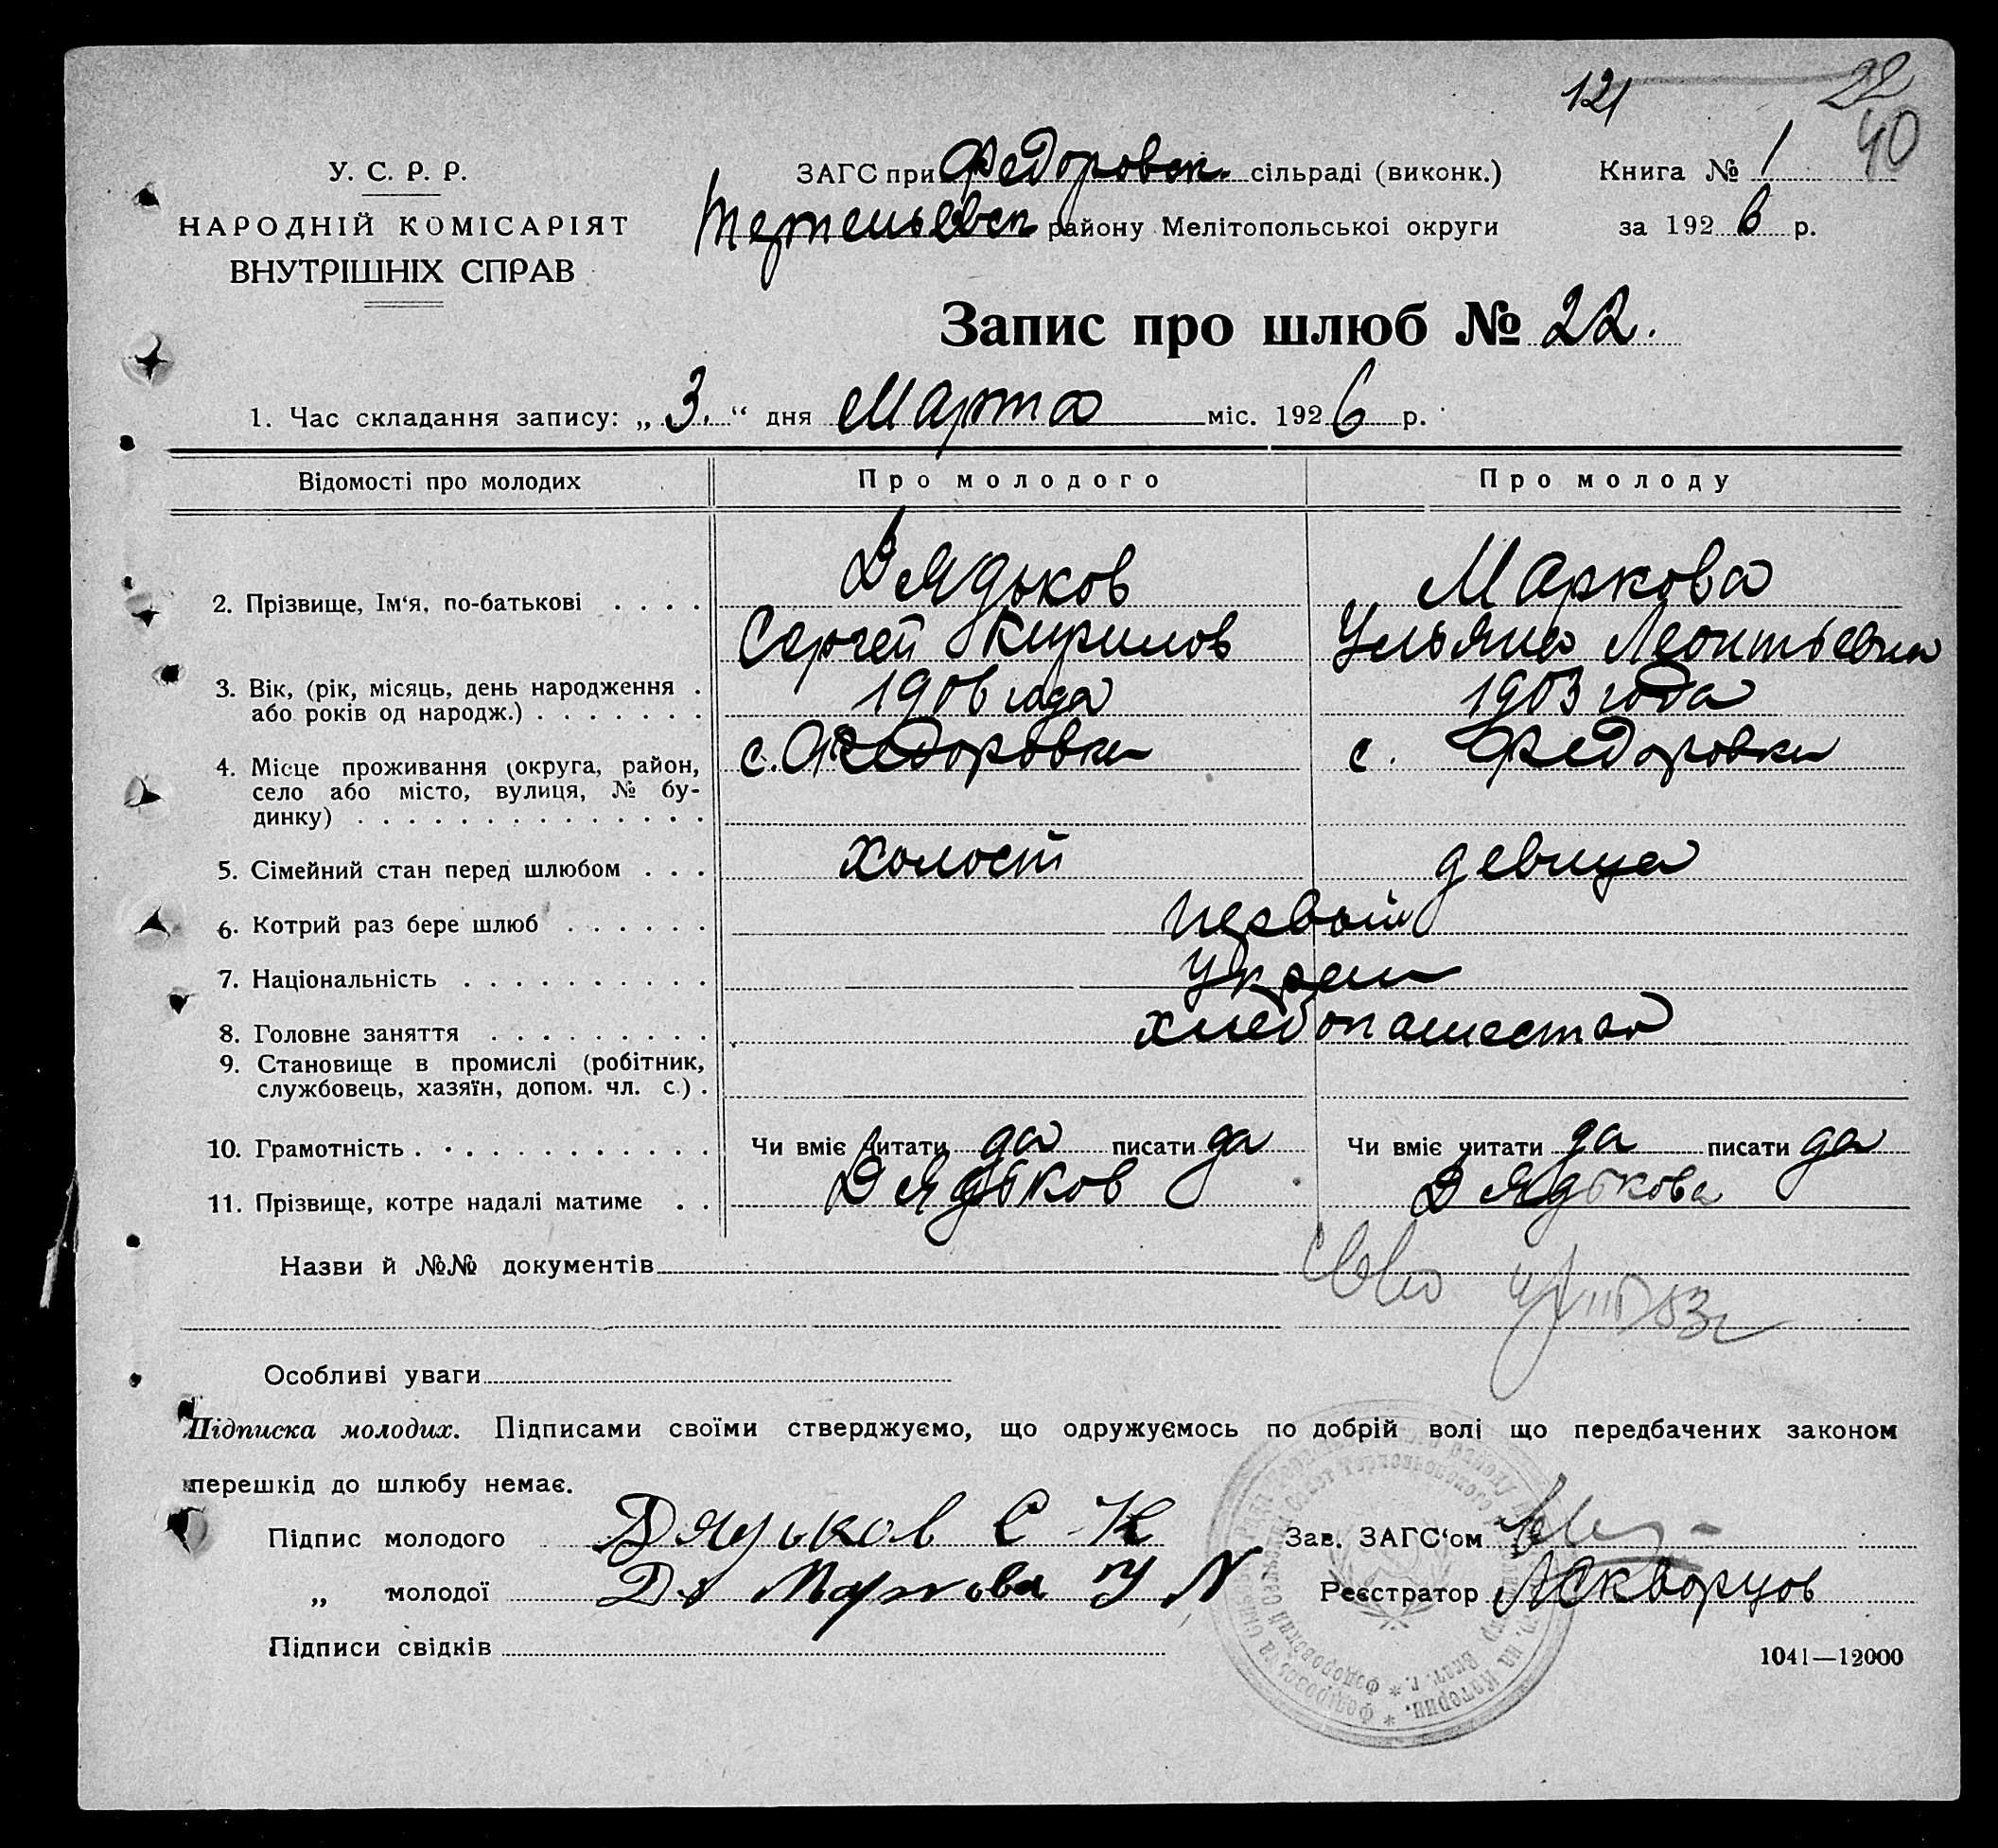 121 22
40
У. С. Р. Р.
НАРОДНІЙ КОМІСАРІЯТ
ВНУТРІШНІХ СПРАВ
ЗАГС при Федоровск. сільраді (виконк.) Книга № 1
району Мелітопольської округи за 1926 р.
Запис про шлюб № 22.
1. Час складання запису: „3.“ дня Марта міс. 1926 р.
Відомості про молодих Про молодого Про молоду
2. Прізвище, Ім‘я, по-батькові . . . . Дядьков Маркова
Сергей Кирилов Ульяна Леонтьевна
3. Вік, (рік, місяць, день народження . 1906 года 1903 года
або років од народж.) . . . . . . .
4. Місце проживання (округа, район, с. Федоровки с. Федоровки
село або місто, вулиця, № бу-
динку) . . . . . . . . . . . . . .
5. Сімейний стан перед шлюбом . . . холост девица
6. Котрий раз бере шлюб . . . . . . первый
7. Національність . . . . . . . . . . Украин
8. Головне заняття . . . . . . . . . хлебопашество
9. Становище в промислі (робітник,
службовець, хазяїн, допом. чл. с.) .
10. Грамотність . . . . . . . . . . . . Чи вміє читати да писати да Чи вміє читати да писати да
11. Прізвище, котре надалі матиме . . Дядьков Дядькова
Назви й №№ документів
Особливі уваги
Підписка молодих. Підписами своїми стверджуємо, що одружуємось по добрій волі що передбачених законом
перешкід до шлюбу немає.
Підпис молодого Дядьков С К Зав. ЗАГС‘ом
„ молодої Маркова У Реєстратор АСкворцов
Підписи свідків
1041—12000